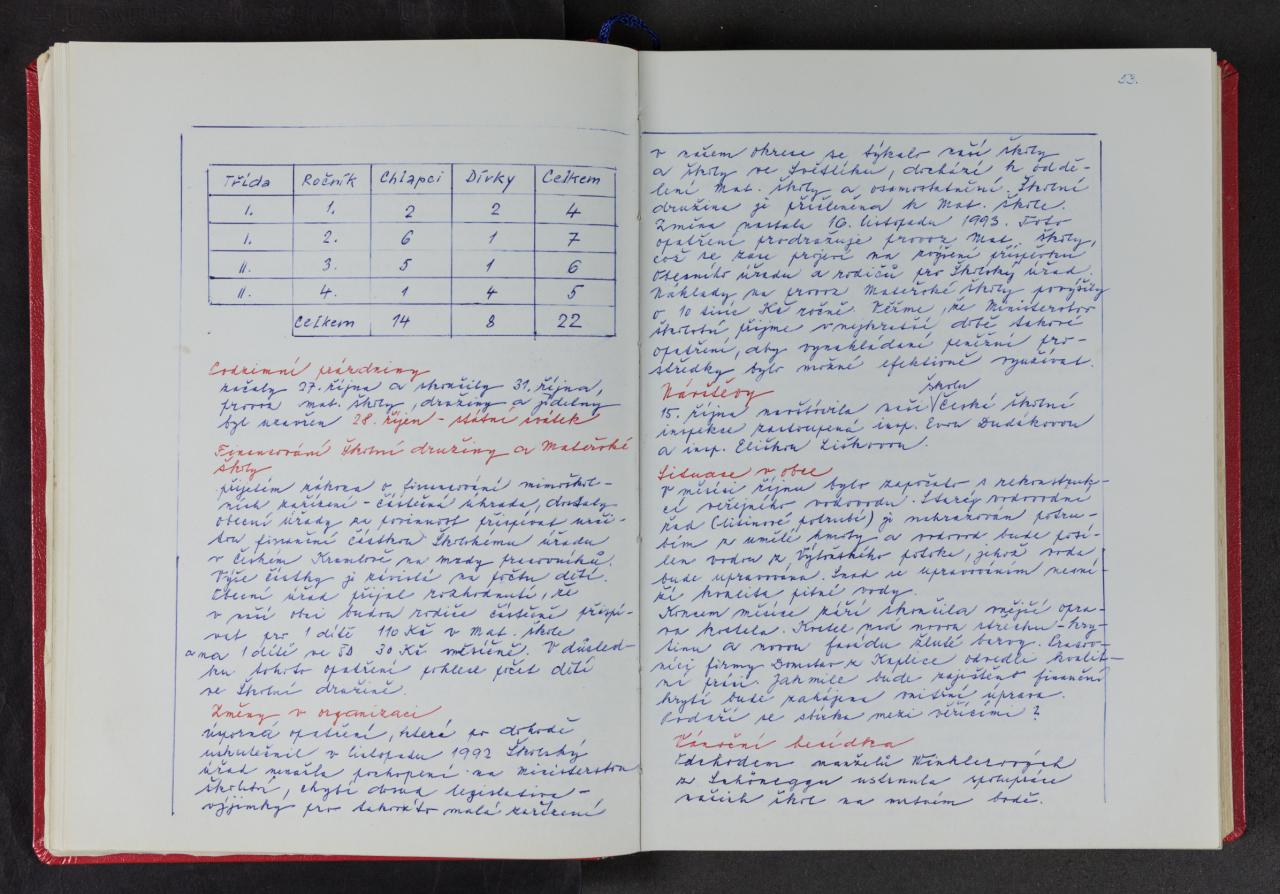 Třída Ročník Chlapci Dívky Celkem
I. 1. 2 2 4
I. 2. 6 1 7
II. 3. 5 1 6
II. 4. 1 4 5
Celkem 14 8 22
Podzimní prázdniny
začaly 27. října a skončily 31. října,
provoz mat. školy, družiny a jídelny
byl uzavřen 28. říjen - státní svátek
Financování školní družiny a Mateřské
školy
přijetím zákona o financování mimoškol-
ních zařízení - částečná úhrada, dostaly
obecní úřady za povinnost přispívat urči-
tou finanční částkou Školskému úřadu
v Českém Krumlově na mzdy pracovníků.
Výše částky je závislá na počtu dětí.
Obecní úřad přijal rozhodnutí, že
v naší obci budou rodiče částečně přispí-
vat pro 1 dítě 110 Kč v Mat. škole
a na 1 dítě ve ŠD 30 Kč měsíčně. V důsled-
ku tohoto opatření poklesl počet dětí
ve školní družině.
Změny v organizaci
úsporná opatření, která po dohodě
uskutečnil v listopadu 1992 Školský
úřad nenašla pochopení na Ministerstvu
školství, chybí dosud legislativa -
výjimky pro takováto malá zařízení
53.
v našem okrese se týkalo naší školy
a školy ve Světlíku, dochází k oddě-
lení Mat. školy a osamostatnění. Školní
družina je přičleněna k Mat. škole.
Změna nastala 16. listopadu 1993. Toto
opatření prodražuje provoz Mat. školy,
což se zase projeví na zvýšení příspěvku
Obecního úřadu a rodičů pro Školský úřad.
Náklady na provoz Mateřské školy povýšily
o 10 tisíc Kč ročně. Věřme, že Ministerstvo
školství přijme v nejkratší době takové
opatření, aby vynakládané peněžní pro-
středky bylo možné efektivně využívat.
Návštěvy
školu
15. října navštívila naši Česká školní
inspekce zastoupená insp. Evou Dudákovou
a insp. Eliškou Liškovou.
Situace v obci
V měsíci říjnu bylo započato s rekonstruk-
cí veřejného vodovodu. Starý vodovodní
řad (litinové potrubí) je nahrazován potru-
bím z umělé hmoty a vodovod bude posí-
len vodou z Vyšného potoka, jehož voda
bude upravována. Snad se upravováním nesní-
ží kvalita pitné vody.
Koncem měsíce září skončila vnější opra-
va kostela. Kostel má novou střechu - kry-
tinu a novou fasádu žluté barvy. Pracov-
níci firmy Domstav z Kaplice odvedli kvalit-
ní práci. Jakmile bude zajištěno finanční
krytí bude zahájena vnitřní úprava.
Podaří se sbírka mezi věřícími?
Vánoční besídka
Odchodem manželů Winklerových
ze Schöneggu ustrnula spolupráce
našich škol na mrtvém bodě.